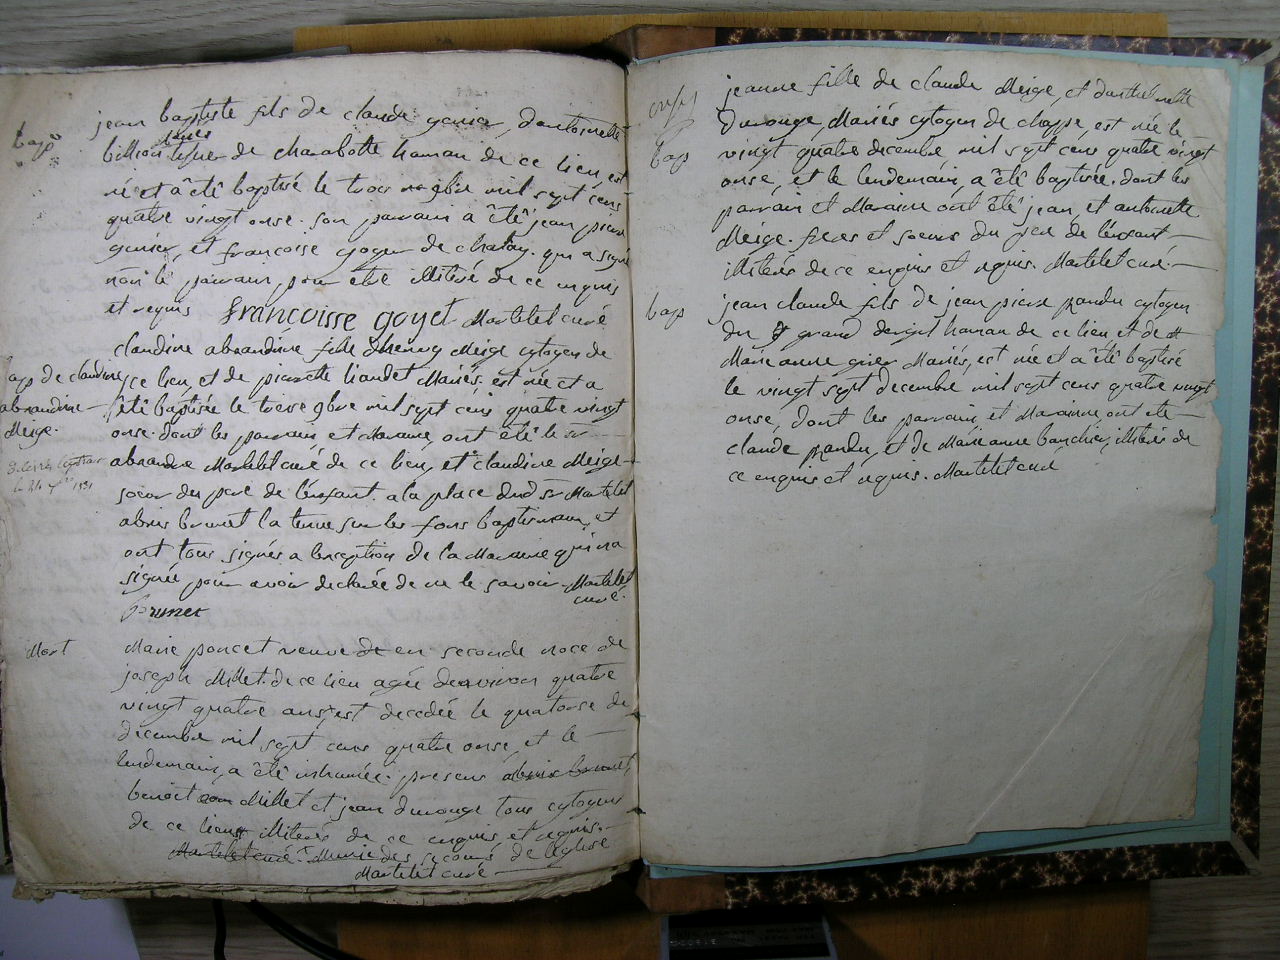 bap
jean baptiste fils de claude genier, dantoinette
billion mariés de charabotte hameau de ce lieu, est
né et à été baptisé le trois xbre mil sept cens
quatre vingt onse. son parrain a été jean pierre
genier, et francoise goyet de chaley. qui a signé
non le parrain pour etre illiteré de ce enquis
et requis francoisse goyet Martelet curé
bap de claudine
alexandrine
Meige.
claudine alexandrine fille d'henry Meige cytoyen de
ce lieu, et de pierrette liaudet Mariés. est née et a
été baptisée le treise 9bre mil sept cens quatre vingt
onse. dont les parrain et Maraine ont été le sr
alexandre Martelet curé de ce lieu, et claudine Meige
soeur du pere de l'enfant. a la place dud sr Martelet
alexis brunet la tenue sur les fons baptismaux, et
ont tous signés a lexception de la Maraine qui n'a
signée pour avoir declarée de ne le savoir Martelet
curé.
Brunet
Mort
Marie poncet veuve de en seconde noce de
joseph Millet. de ce lieu agée denviron quatre
vingt quatre ans, est decedée le quatorse de
decembre mil sept cens quatre onse, et le
lendemain, a été inhumée. presens alexis brunet,
benoit Millet et jean durouge tous cytoyens
de ce lieu illiterés de ce enquis et requis.
Martelet curé. Munie des secours de l'eglise
Martelet curé
bap
jeanne fille de claude Meige, et d'anthelmette
durouge, Mariés cytoyen de chappe, est née le
vingt quatre decembre mil sept cens quatre vingt
onse, et le lendemain, a été baptisée. dont les
parrain et Maraine ont été jean, et antoinette
Meige. freres et soeurs du pere de l'enfant
illiterés de ce enquis et requis. Martelet curé.
bap
jean claude fils de jean pierre prandu cytoyen
du grand dergit hameau de ce lieu et de
Marie anne grier Mariés, est née et a été baptisé
le vingt sept decembre mil sept cens quatre vingt
onse, dont les parrain, et Maraine, ont été
claude prandu, et de Marieanne banchier, illiterés de
ce enquis et requis. Martelet curé